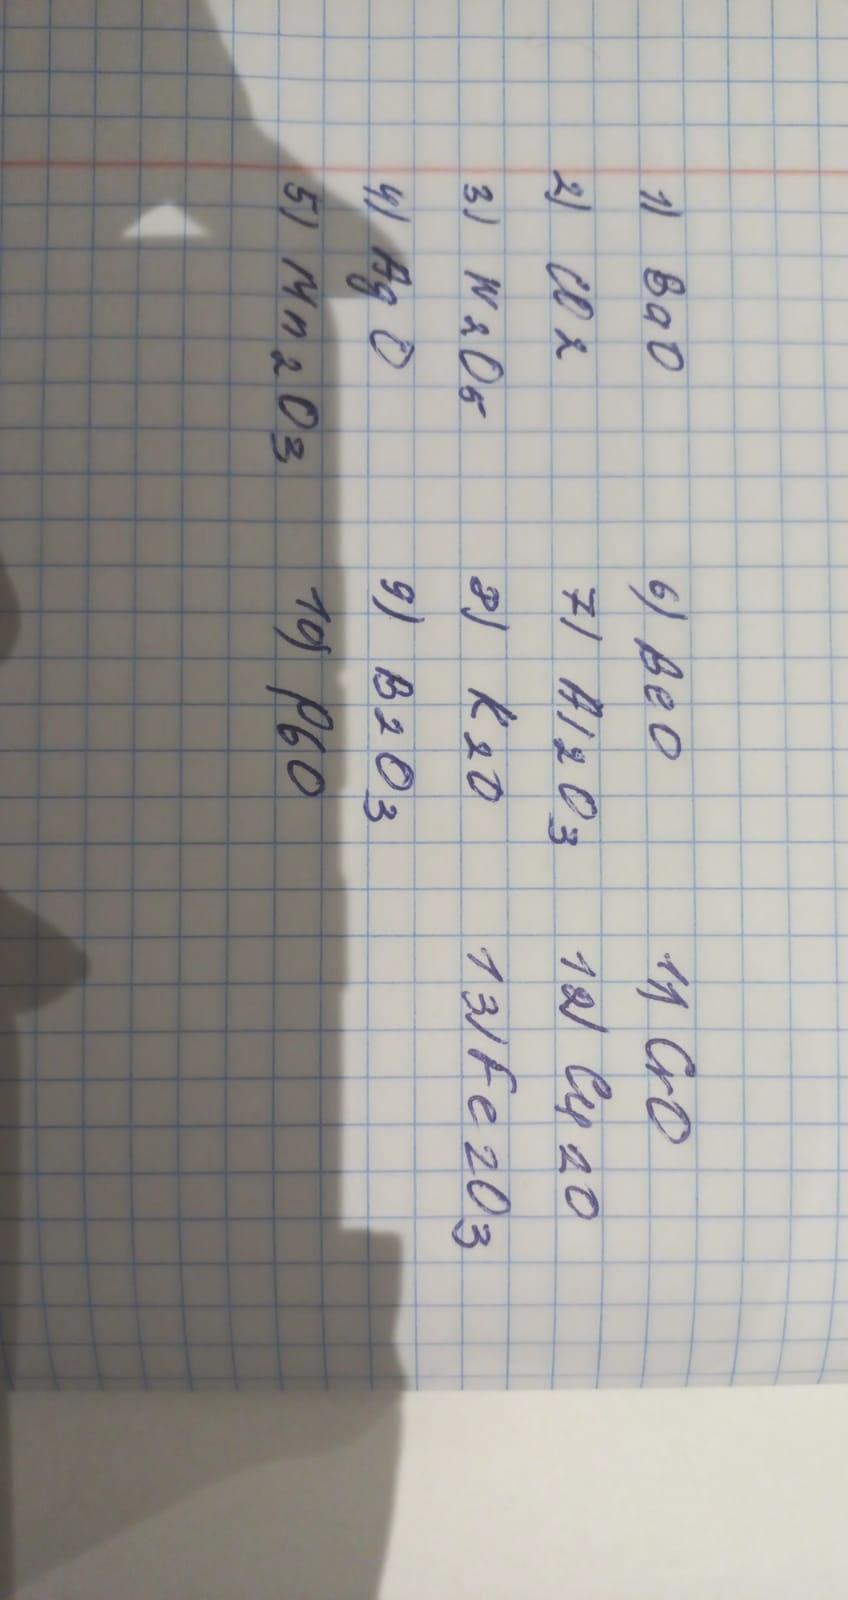 1) BaO
2) CO2
3) N2O5
4) AgO
5) Mn2O3
6) BeO
7) Al2O3
8) K2O
9) B2O3
10) PbO
11) CrO
12) Cu2O
13) Fe2O3